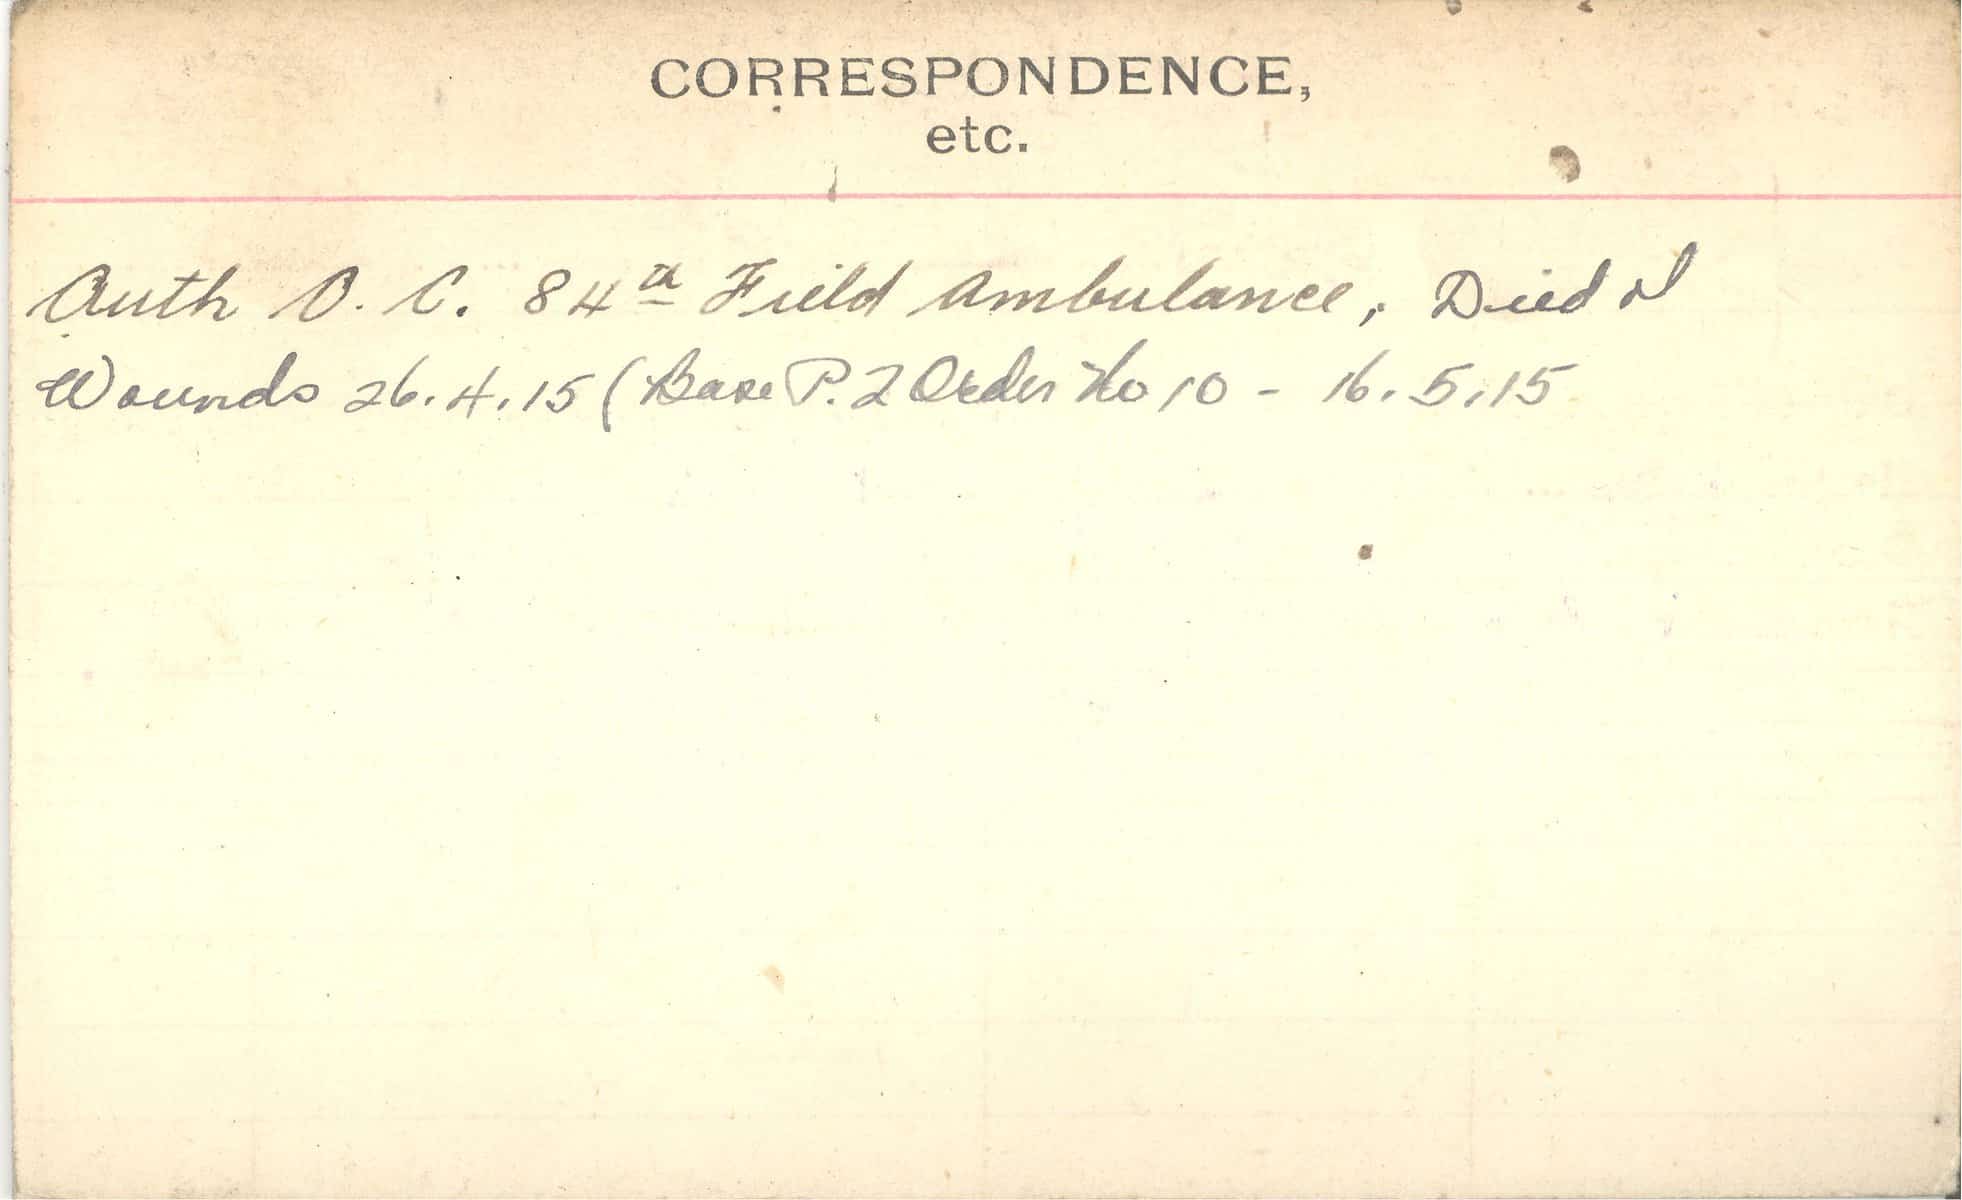 CORRESPONDENCE,
etc.
Auth O. C. 84th Field Ambulance, Died of
Wounds 26.4.15 (Base P. 2 Order No 10 - 16.5.15